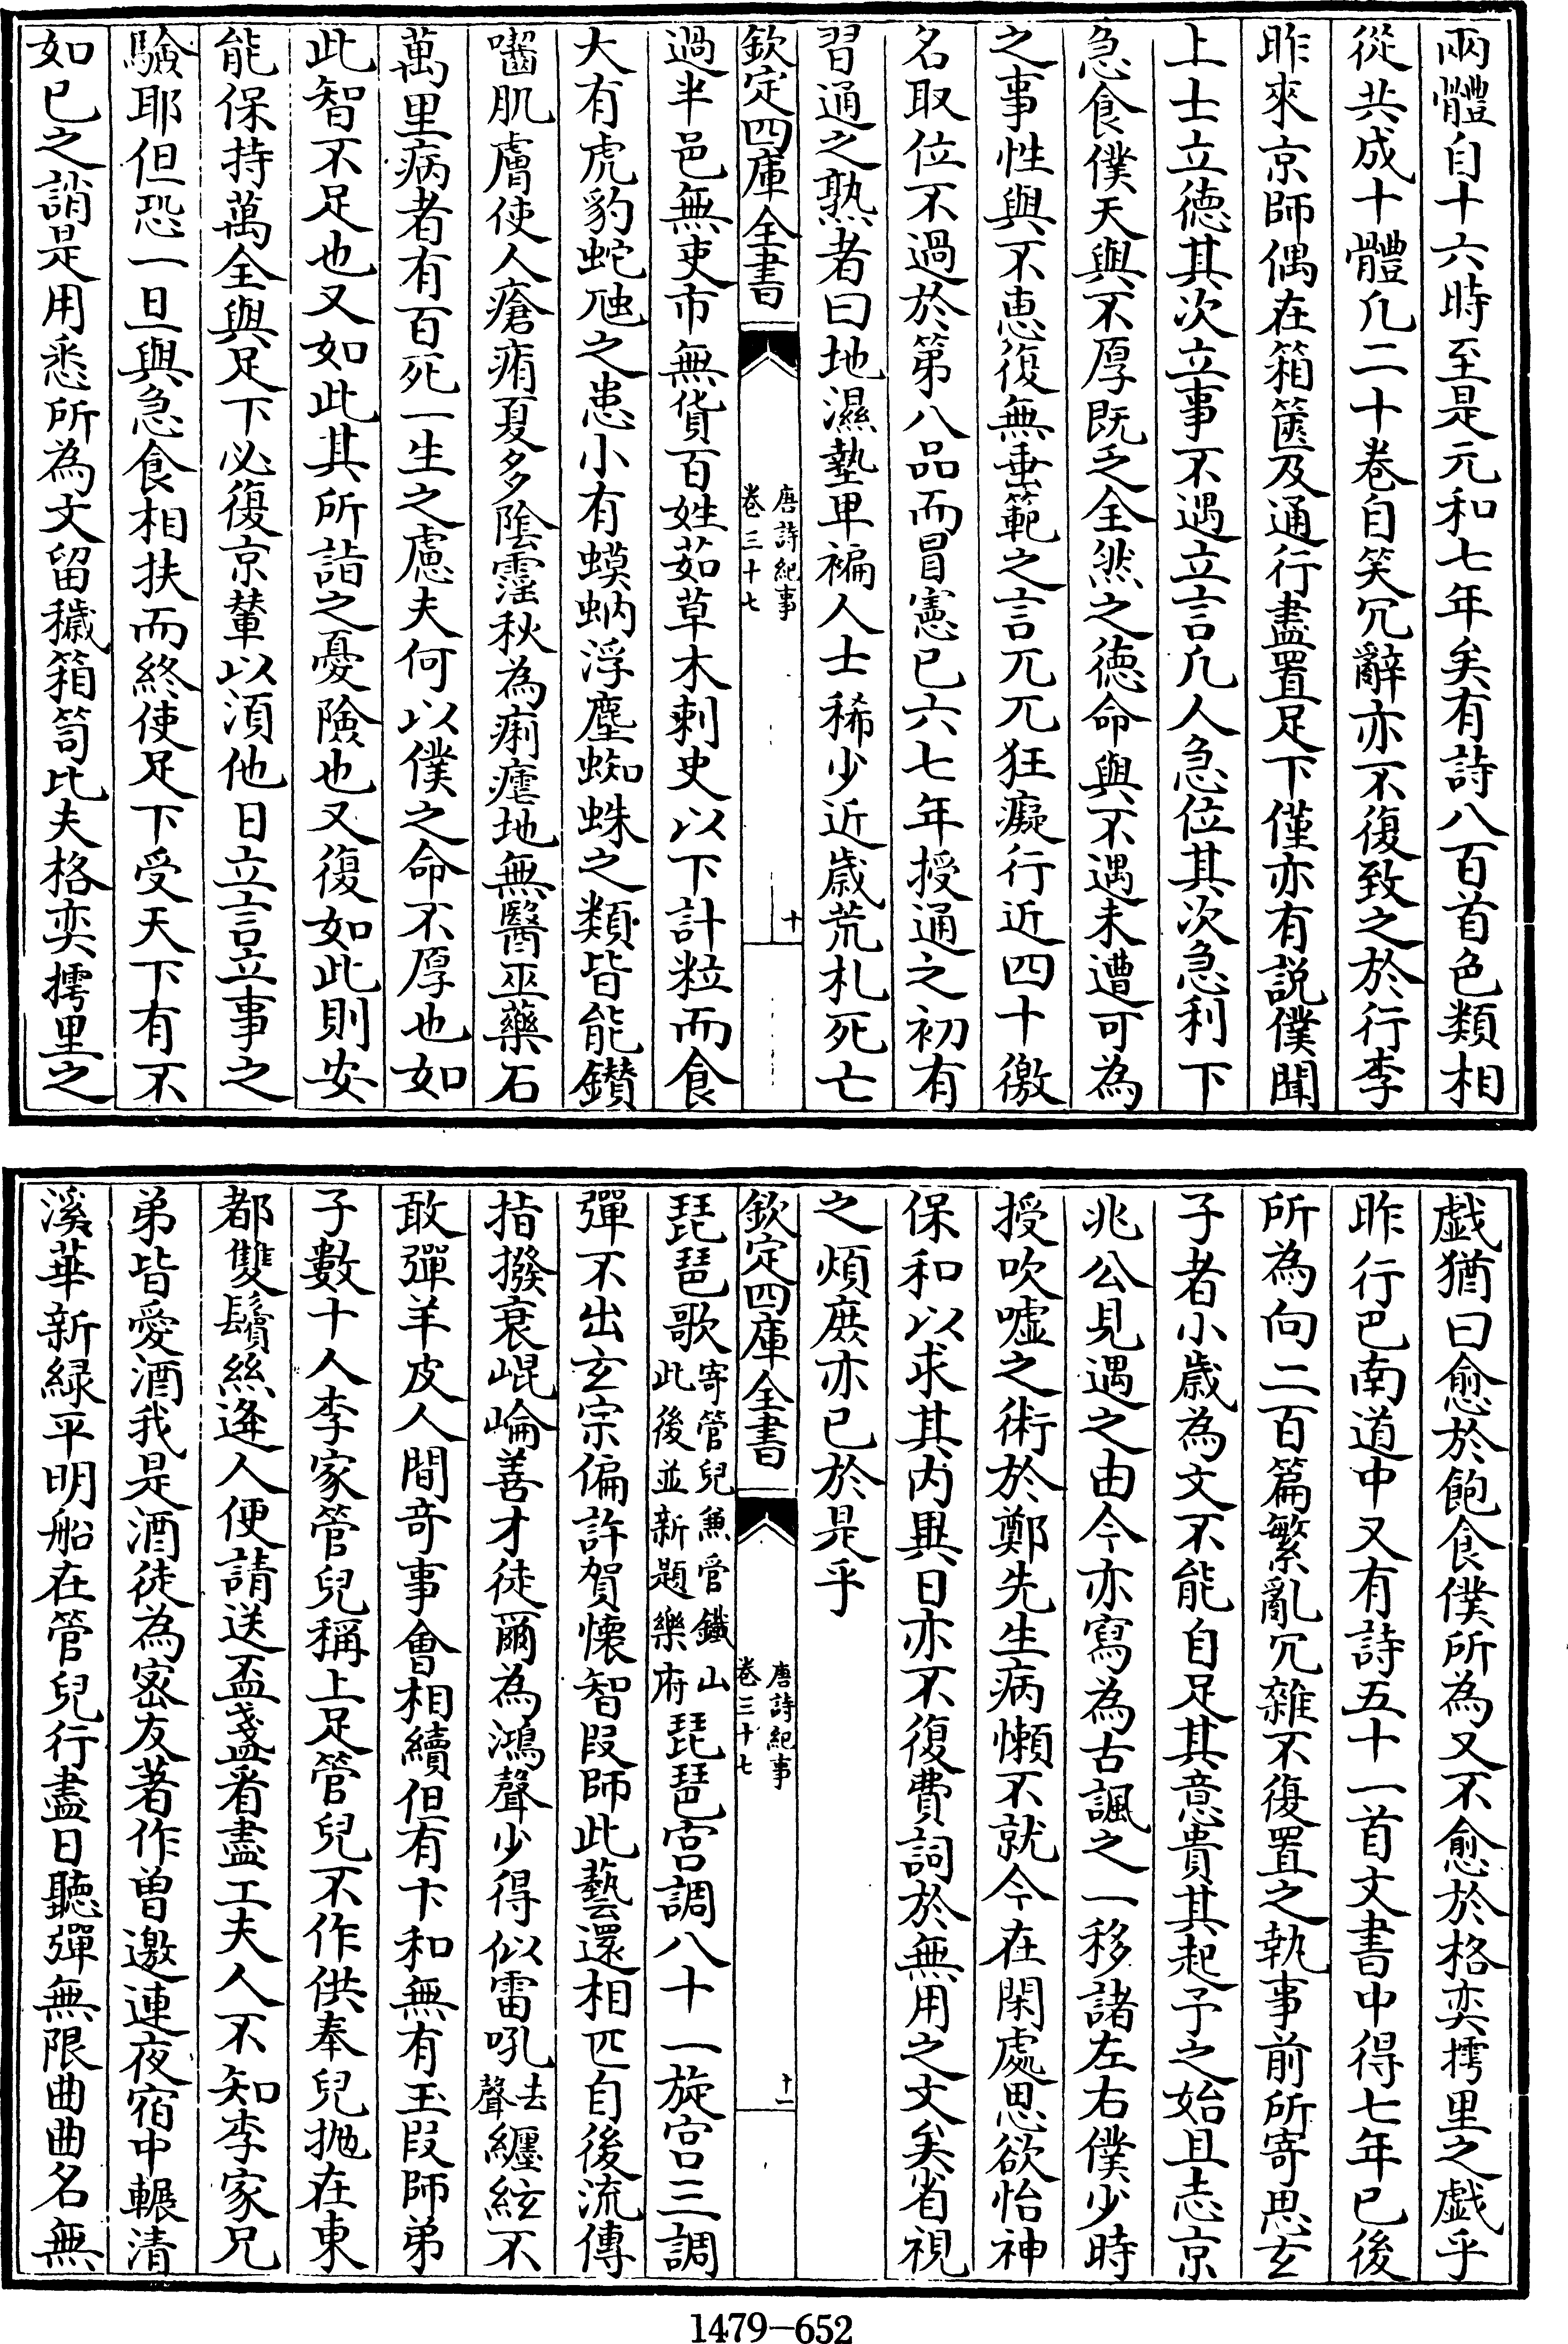 兩體自十六時至是元和七年矣有詩八百首色類相
從共成十體凡二十卷自笑冗辭亦不復致之於行李
昨來京師偶在箱篋及通行盡置足下僅亦有説僕聞
上士立德其次立事不遇立言凡人急位其次急利下
急食僕天與不厚既乏全然之德命與不遇未遭可為
之事性與不恵復無垂範之言兀兀狂癡行近四十徼
名取位不過於第八品而冒憲已六七年授通之初有
習通之熟者曰地濕墊卑褊人士稀少近歳荒札死亡
欽定四庫全書
唐詩紀事
卷三十七
十
過半邑無吏市無貨百姓茹草木刺史以下計粒而食
大有虎豹蛇虺之患小有蟆蚋浮塵蜘蛛之類皆能鑽
囓肌膚使人瘡痏夏多陰霪秋為痢瘧地無醫巫藥石
萬里病者有百死一生之慮夫何以僕之命不厚也如
此智不足也又如此其所詣之憂險也又復如此則安
能保持萬全與足下必復京輦以須他日立言立事之
驗耶但恐一旦與急食相扶而終使足下受天下有不
如已之誚是用悉所為文留穢箱笥比夫格奕摴里之
戯猶曰愈於飽食僕所為又不愈於格奕摴里之戯乎
昨行巴南道中又有詩五十一首文書中得七年已後
所為向二百篇繁亂冗雜不復置之執事前所寄思玄
子者小歳為文不能自足其意貴其起予之始且志京
兆公見遇之由今亦寫為古諷之一移諸左右僕少時
授吹嘘之術於鄭先生病懶不就今在閑處思欲怡神
保和以求其内異日亦不復費詞於無用之文矣省視
之煩庶亦已於是乎
欽定四庫全書
唐詩紀事
卷三十七
十一
琵琶歌寄管兒兼管鐵山此後並新題樂府琵琶宫調八十一旋宫三調
彈不出玄宗偏許賀懐智段師此藝還相匹自後流傳
指撥衰崐崘善才徒爾為澒聲少得似雷吼去聲纒絃不
敢彈羊皮人間竒事會相續但有卞和無有玉段師弟
子數十人李家管兒稱上足管兒不作供奉兒抛在東
都雙鬢絲逄人便請送盃盞着盡工夫人不知李家兄
弟皆愛酒我是酒徒為宻友著作曽邀連夜宿中輾清
溪華新緑平明船在管兒行盡日聽彈無限曲曲名無
1479-652